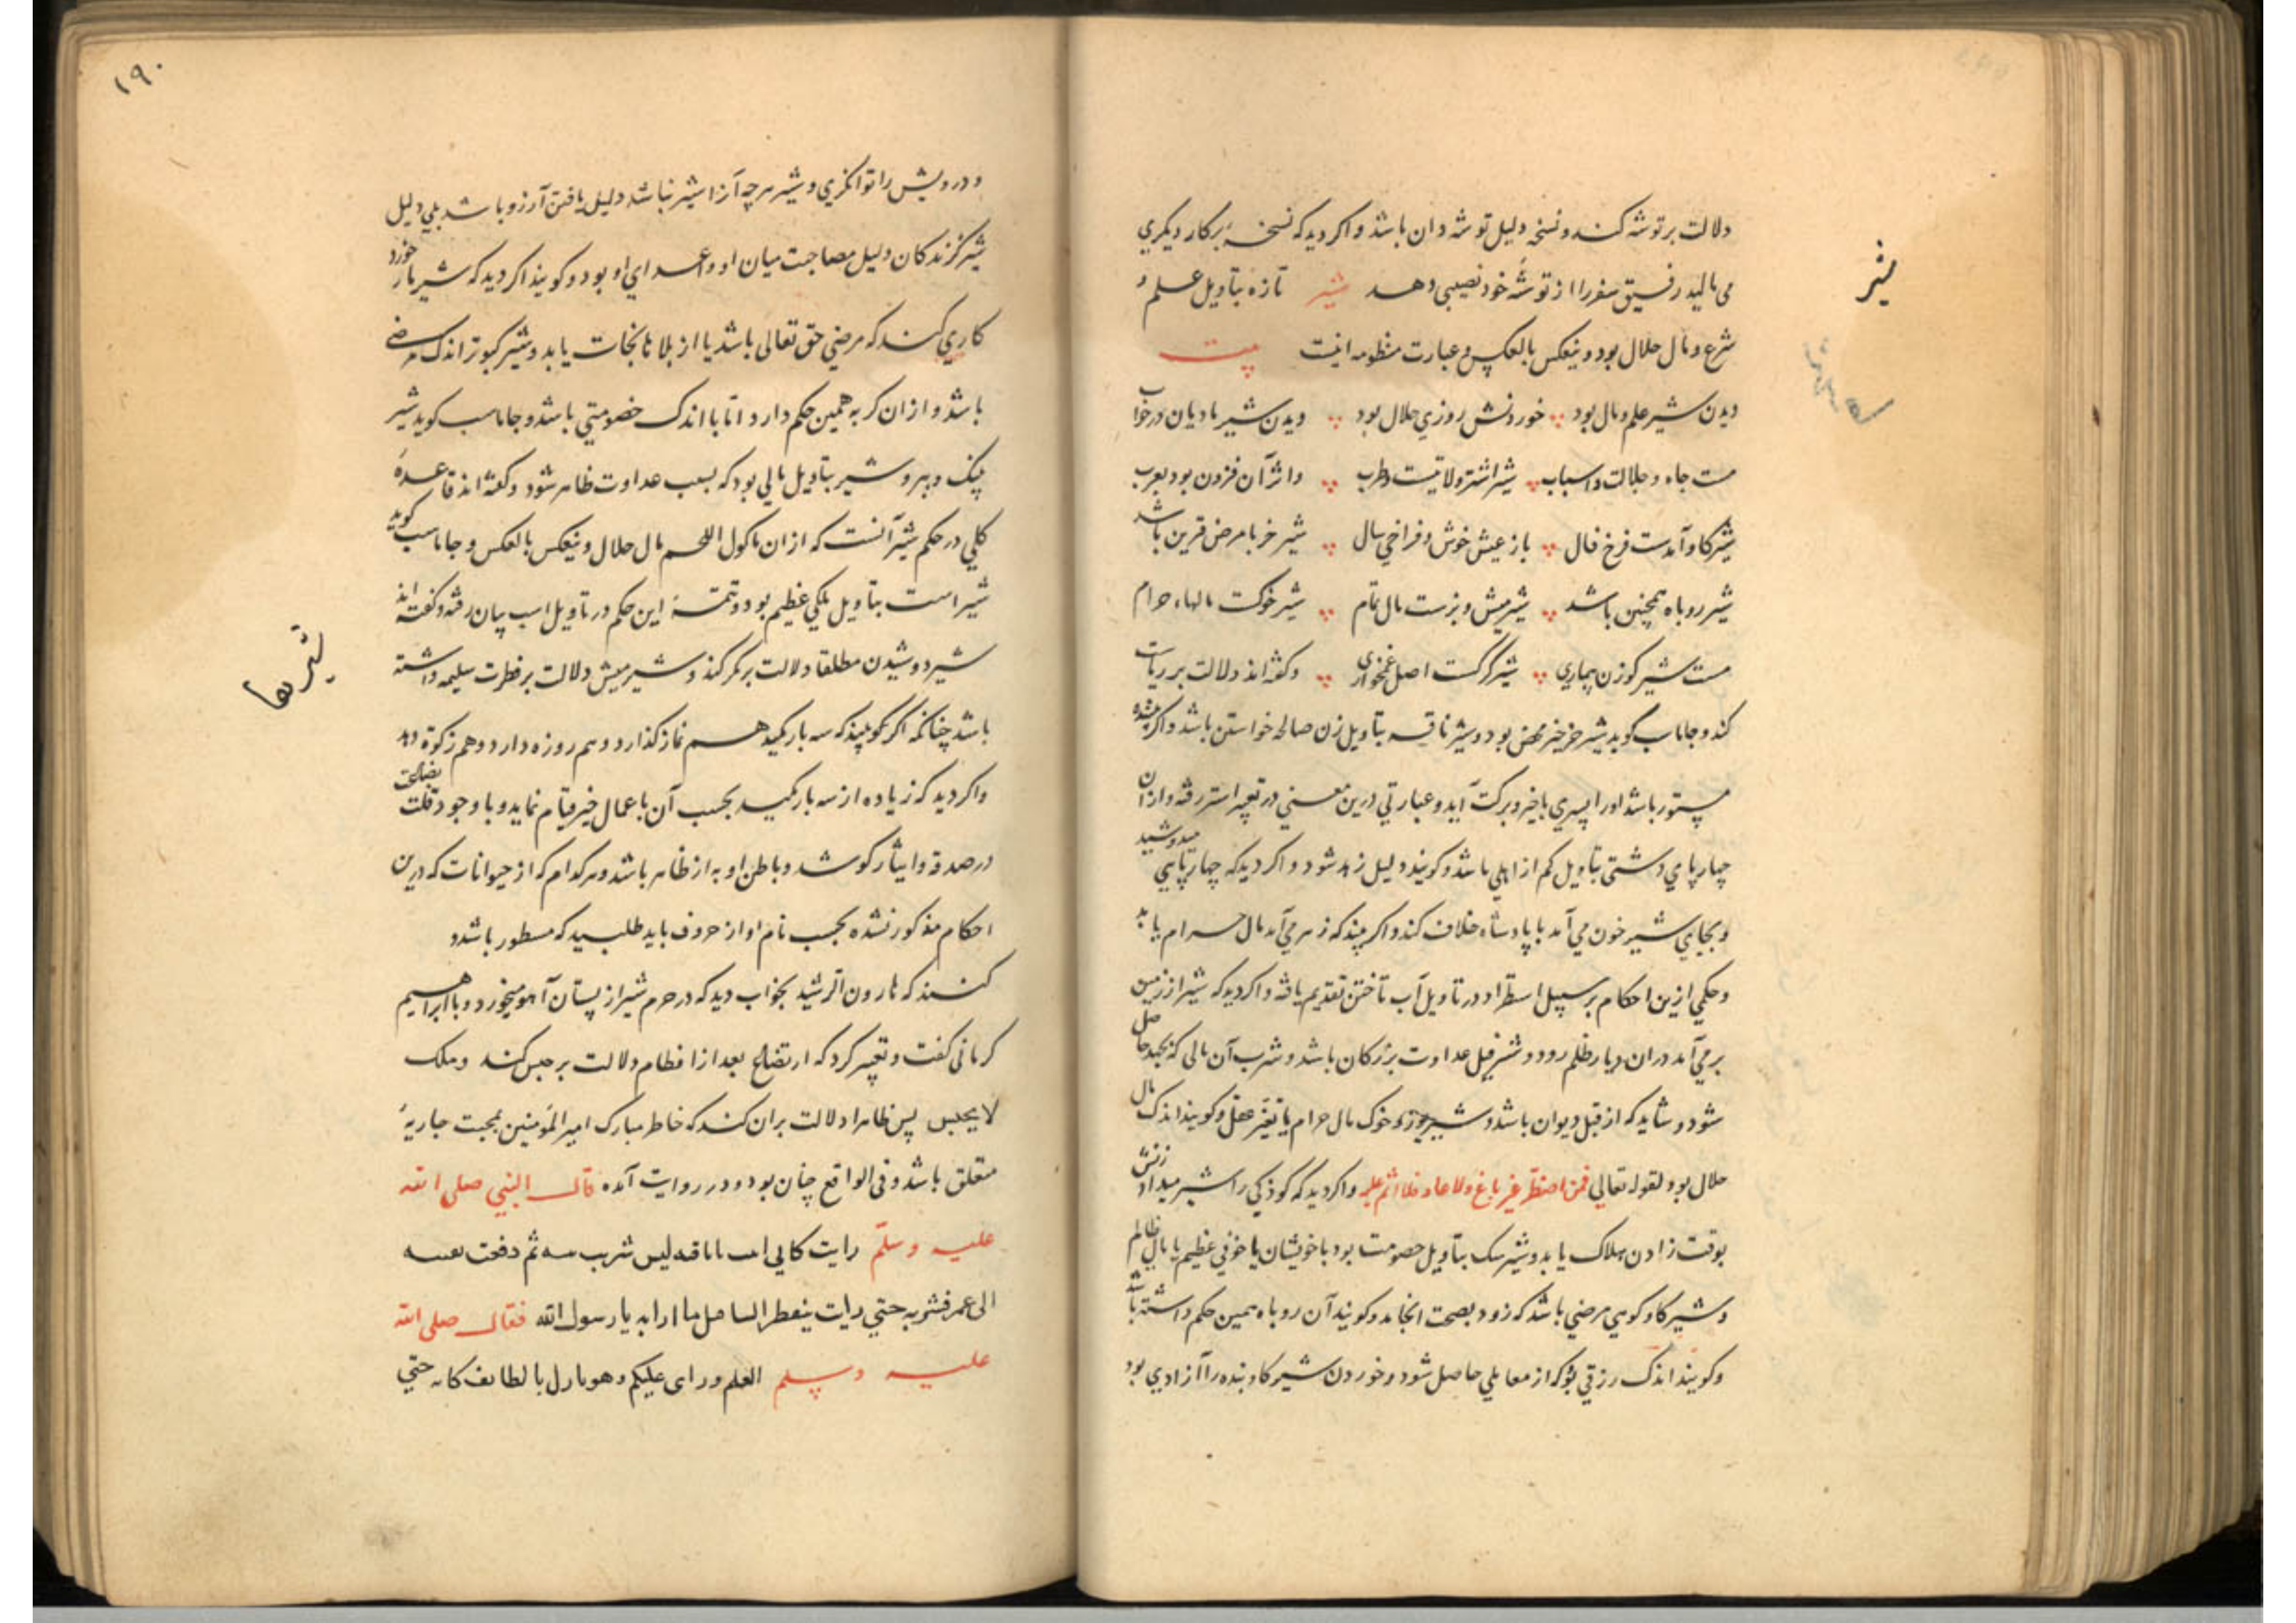 شیر
دلالت بر توشه کند و نسخه دلیل توشه دان باشد و اکر دید که نسخهٔ بر کار دیکری
می مالید رفیق سفر را از توشهٔ خود نصیبی دهد شیر تازه بتأویل علم و
شرع و مال حلال بود و ینعکس بالعکس و عبارت منظومه اینست بیت
دیدن شیر علم و مال بود خوردنش روزی حلال بود دیدن شیر مادیان در خواب
هست جاه و جلالت و اسباب شیر اشتر ولایتست و طرب واثر آن فزون بود بعرب
شیر کاو آمدست فرخ فال باز عیش خوش و فراخی سال شیر خر با مرض قرین باشد
شیر روباه همچنین باشد شیر میش و بزست مال تمام شیر خوکست مالهاء حرام
هست شیر کوزن بیماری شیر کرکست اصل غمخواری و کفته‌اند دلالت بر ریاست
کند و جاماسب کوید شیر خر خیر محض بود و شیر ناقه بتأویل زن صالحه خواستن باشد و اکر
مستور باشد او را پسری با خیر و برکت آید و عبارتی درین معنی در تعبیر استر رفته و از آن
چهارپای دشتی بتأویل کم از اهلی باشد و کویند دلیل زهد شود و اکر دید که چهارپایی میدوشید
و بجای شیر خون می آمد با پادشاه خلاف کند و اکر بیند که زهر می آمد مال حرام یابد
و حکمی ازین احکام بر سبیل استطراد در تأویل آب تاختن تقدیم یافته و اکر دید که شیر از زمین
بر می آمد در آن دیار ظلم رود و شیر فیل عداوت بزرکان باشد و شرب آن مالی که بجهد حاصل
شود و شاید که از قبل دیوان باشد و شیر یوز و خوک مال حرام یا تغیر عقل و کویند اندک مال
حلال بود لقوله تعالی فمن اضطر غیر باغ ولا عاد فلا اثم علیه و اکر دید که کودکی را شیر میداد زنش
بوقت زادن هلاک یابد و شیر سک بتأویل خصومت بود با خویشان یا خوفی عظیم یا مال ظالم
و شیر کاو کوهی مرضی باشد که زود بصحت انجامد و کویند آن روباه همین حکم داشته باشد
و کویند اندک رزقی بود که از معاملی حاصل شود و خوردن شیر کاو بنده را آزادی بود
۱۹۰
و درویش را توانکری و شیر هر چه آن را شیر نباشد دلیل یافتن آرزو باشد بلی دلیل
شیر کزندکان دلیل مصاحبت میان او و اعدای او بود و کویند اکر دید که شیر مار خورد
کاری کند که مرضی حق تعالی باشد یا از بلاها نجات یابد و شیر کبوتر اندک مرضی
باشد و از آن کربه همین حکم دارد اما با اندک خصومتی باشد و جاماسب کوید شیر
پلنک و ببر و شیر بتأویل مالی بود که بسبب عداوت ظاهر شود و کفته‌اند قاعدهٔ
کلی در حکم شیر آنست که از آن ماکول اللحم مال حلال و ینعکس بالعکس و جاماسب کوید
شیر است بتأویل ملکی عظیم بود و تتمهٔ این حکم در تأویل اسب بیان رفته و کفته‌اند
شیر دوشیدن مطلقا دلالت بر مکر کند و شیر میش دلالت بر فطرت سلیمه داشته
شیرها
باشد چنانکه اکر کوسپند که سه بار مکید هم نماز کذارد و هم روزه دارد و هم زکوة دهد
و اکر دید که زیاده از سه بار مکید بحسب آن باعمال خیر قیام نماید و با وجود قلت بضاعت
در صدقه و ایثار کوشد و باطن او به از ظاهر باشد و هر کدام که از حیوانات که درین
احکام مذکور نشده بحسب نام او از حروف باید طلبید که مسطور باشد و
کنند که هارون الرشید بخواب دید که در حرم شیر از پستان آهو میخورد و با ابراهیم
کرمانی کفت و تعبیر کرد که ارتضاع بعد از افطام دلالت بر حبس کند و ملک
لا یحبس پس ظاهرا دلالت بر آن کند که خاطر مبارک امیر المؤمنین بمحبت جاریهٔ
متعلق باشد و فی الواقع چنان بود و در روایت آمده قال النبی صلی الله
علیه وسلم رایت کانی لبن شرب منه ثم دفعت
الی عمر فشربه حتی رایت یا رسول الله فقال صلی الله
علیه وسلم العلم ورای علیکم وهو بالطائف کانه حتی